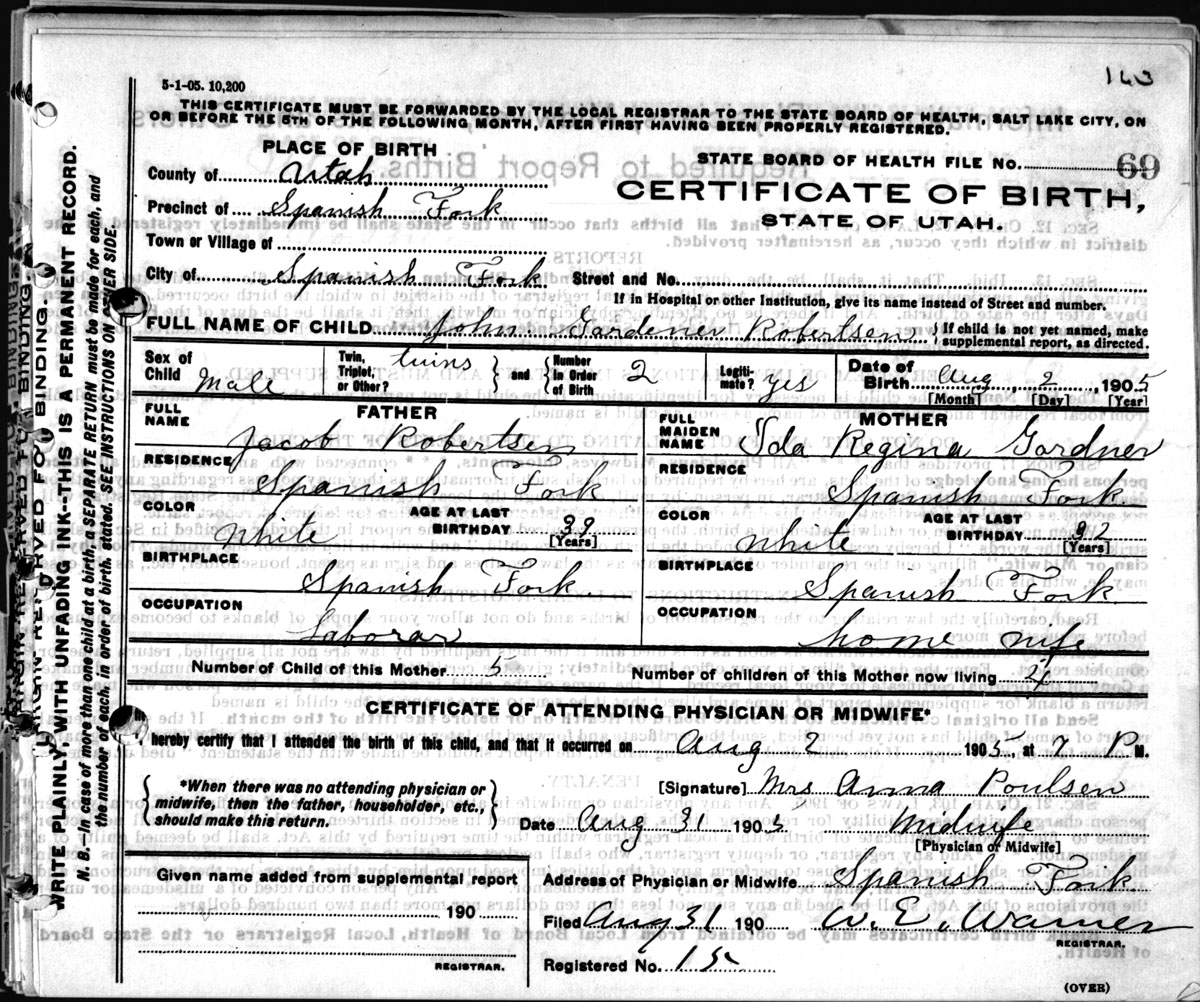 163
5-1-05. 10,200
THIS CERTIFICATE MUST BE FORWARDED BY THE LOCAL REGISTRAR TO THE STATE BOARD OF HEALTH, SALT LAKE CITY, ON
OR BEFORE THE 5TH OF THE FOLLOWING MONTH, AFTER FIRST HAVING BEEN PROPERLY REGISTERED.
PLACE OF BIRTH
STATE BOARD OF HEALTH FILE No. 69
County of Utah
CERTIFICATE OF BIRTH,
Precinct of Spanish Fork
STATE OF UTAH.
Town or Village of
City of Spanish Fork Street and No.
If in Hospital or other Institution, give its name instead of Street and number.
FULL NAME OF CHILD John Gardener Robertsen } If child is not yet named, make
supplemental report, as directed.
Sex of Child Male Twin, Triplet, or Other? twins } and { Number in Order of Birth 2 Legitimate? yes Date of Birth Aug 2 1905
[Month] [Day] [Year]
FATHER
FULL NAME Jacob Robertsen
RESIDENCE Spanish Fork
COLOR White AGE AT LAST BIRTHDAY 39
[Years]
BIRTHPLACE
Spanish Fork
OCCUPATION
Laborar
MOTHER
FULL MAIDEN NAME Ida Regina Gardner
RESIDENCE
Spanish Fork
COLOR White AGE AT LAST BIRTHDAY
[Years]
BIRTHPLACE
Spanish Fork
OCCUPATION
home wife
Number of Child of this Mother 5 Number of children of this Mother now living
CERTIFICATE OF ATTENDING PHYSICIAN OR MIDWIFE*
hereby certify that I attended the birth of this child, and that it occurred on Aug 2 1905, at 2 P M.
{ *When there was no attending physician or
midwife, then the father, householder, etc.,
should make this return. }
[Signature] Mrs Anna Poulsen
Date Aug 31 1905 Midwife
[Physician or Midwife]
Given name added from supplemental report
190
REGISTRAR.
Address of Physician or Midwife Spanish Fork
Filed Aug 31 190 W. E. Warner
REGISTRAR.
Registered No. 15
(OVER)
MARGIN RESERVED FOR BINDING.
WRITE PLAINLY, WITH UNFADING INK--THIS IS A PERMANENT RECORD.
N. B.--In case of more than one child at a birth, a SEPARATE RETURN must be made for each, and
the number of each, in order of birth, stated. SEE INSTRUCTIONS ON OTHER SIDE.